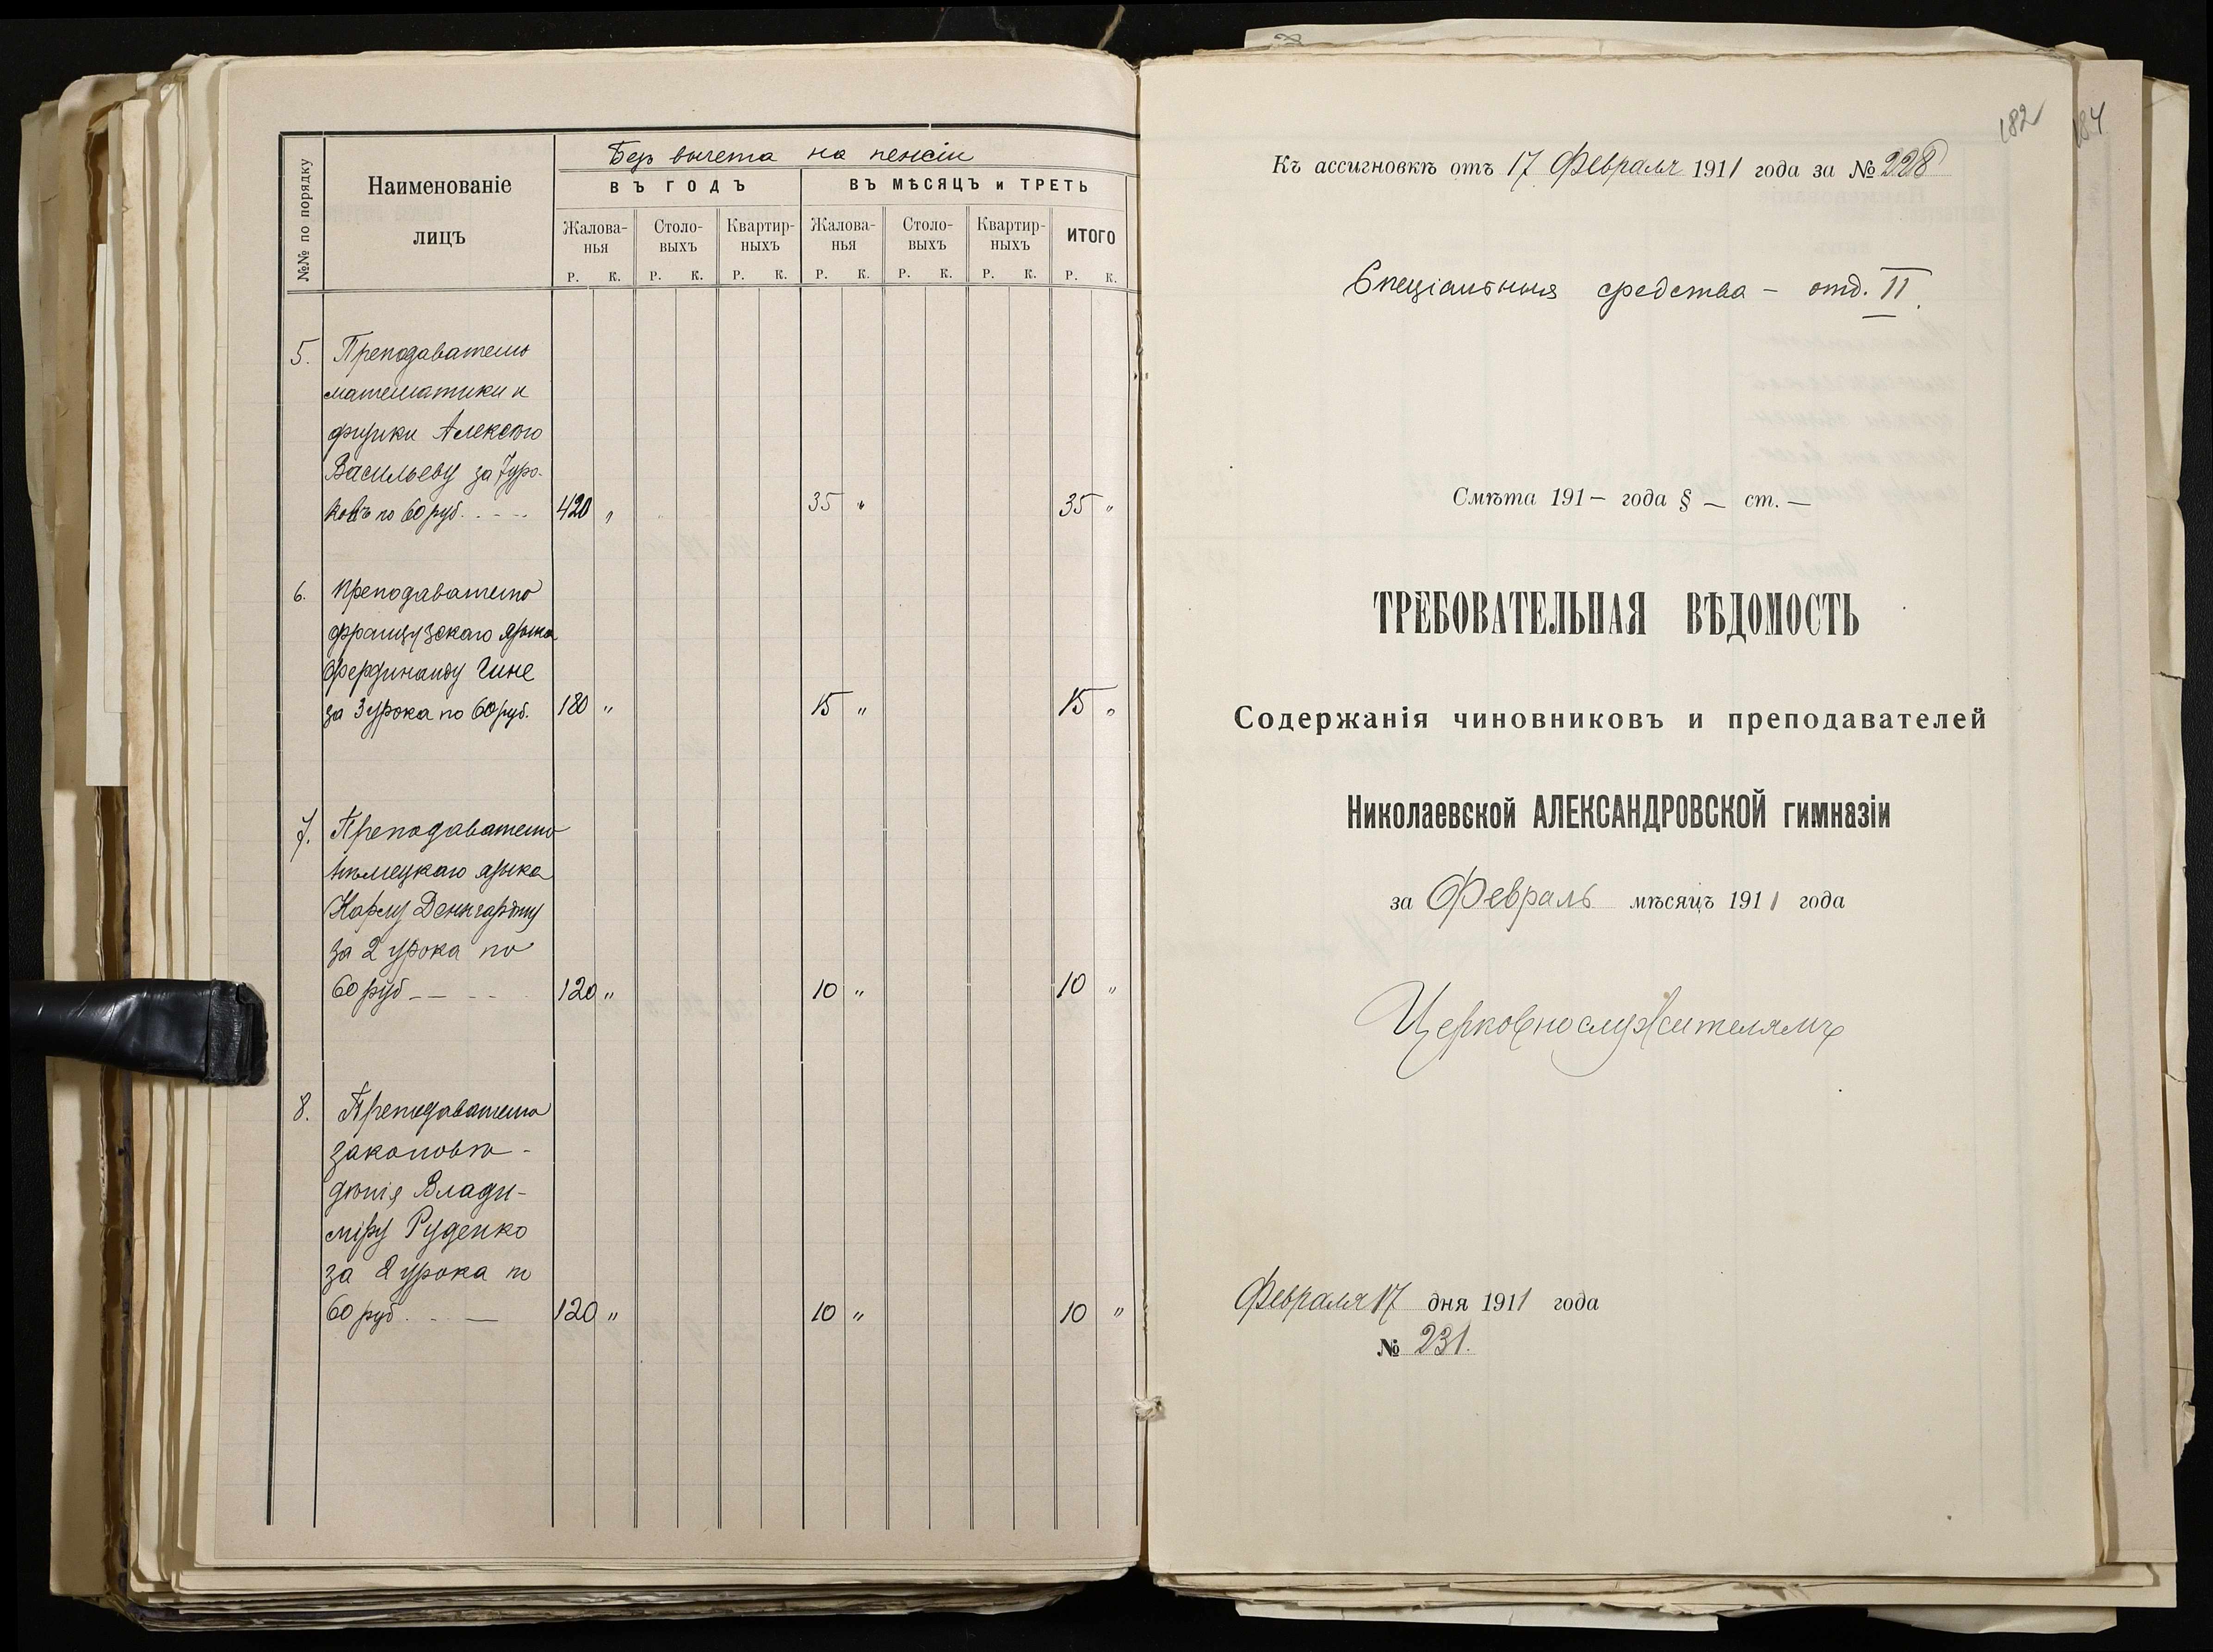 №№ по порядку
Наименованіе
лицъ
Безъ вычета на пенсіи
ВЪ ГОДЪ
ВЪ МѢСЯЦЪ и ТРЕТЬ
Жалова-
нья
Столо-
выхъ
Квартир-
ныхъ
Жалова-
нья
Столо-
выхъ
Квартир-
ныхъ
ИТОГО
Р. К. Р. К. Р. К. Р. К. Р. К. Р. К. Р. К.
5. Преподавателю
математики и
физики Алексѣю
Васильеву за 7 уро-
ковъ по 60 руб. . - - 420 „ 35 „ 35 „
6. Преподавателю
французскаго языка
Фердинанду Гине
за 3 урока по 60 руб. 180 „ 15 „ 15 „
7. Преподавателю
нѣмецкаго языка
Карлу Денгардту
за 2 урока по
60 руб - - - - 120 „ 10 „ 10 „
8. Преподавателю
законовѣ-
дѣнія Влади-
міру Руденко
за 2 урока по
60 руб. . - — 120 „ 10 „ 10 „
182
184
Къ ассигновкѣ отъ 17 Февраля 1911 года за № 228
Спеціальныя средства - отд. II.
Смѣта 191- года § - ст. -
ТРЕБОВАТЕЛЬНАЯ ВѢДОМОСТЬ
Содержанія чиновниковъ и преподавателей
Николаевской АЛЕКСАНДРОВСКОЙ гимназіи
за Февраль мѣсяцъ 1911 года
Церковнослужителямъ
Февраля 17 дня 1911 года
№ 231.